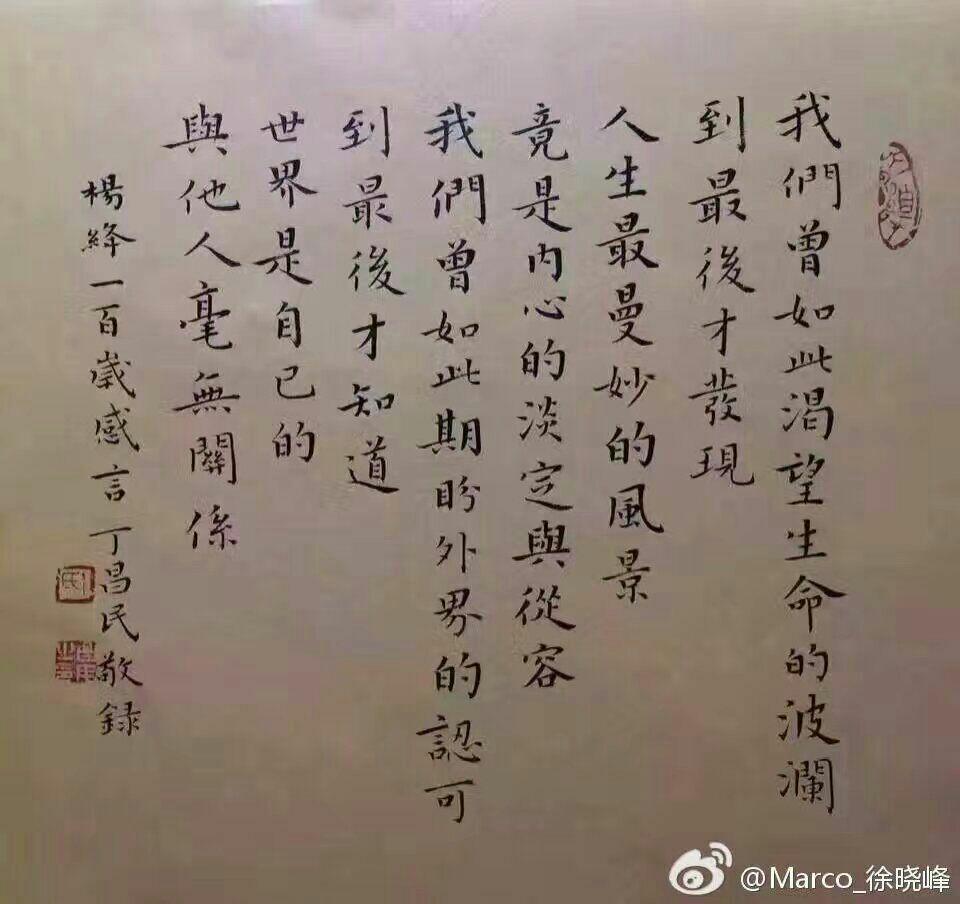 我們曾如此渴望生命的波瀾
到最後才發現
人生最曼妙的風景
竟是内心的淡定與從容
我們曾如此期盼外界的認可
到最後才知道
世界是自己的
與他人毫無關係
楊絳一百歲感言 丁昌民敬録
@Marco_徐晓峰